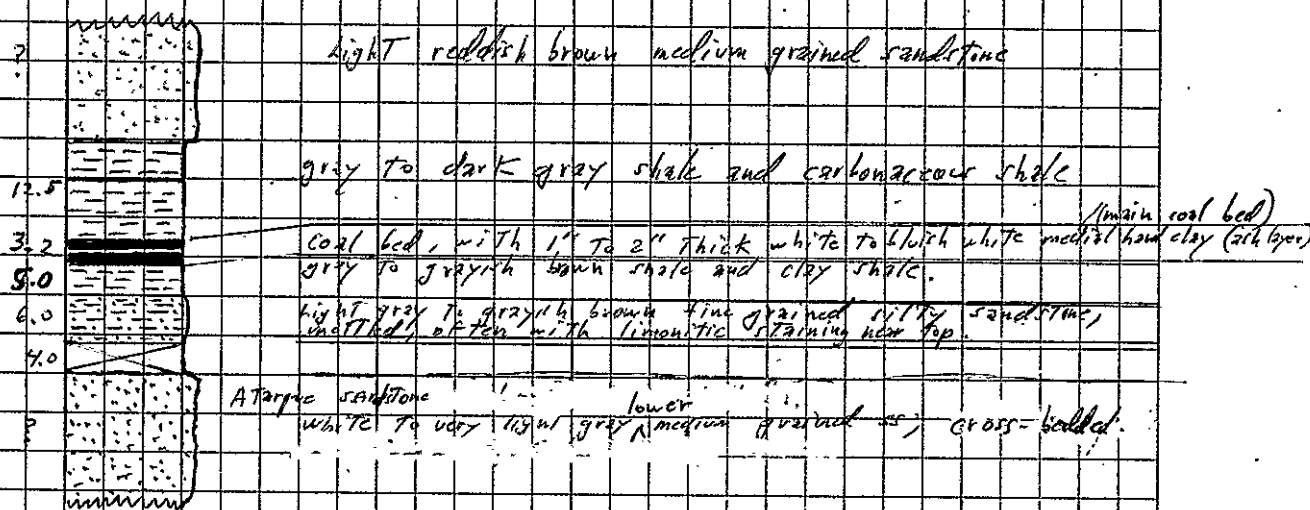 ? Light reddish brown medium grained sandstone
12.5 gray to dark gray shale and carbonaceous shale
(main coal bed)
3.2 Coal bed, with 1" to 2" thick white to bluish white medial hard clay (ash layer)
5.0 gray to grayish brown shale and clay shale.
6.0 Light gray to grayish brown fine grained silty sandstone,
mottled, often with limonitic staining near top.
4.0
Atarque sandstone
lower
? white to very light gray ^ medium grained ss; cross-bedded.